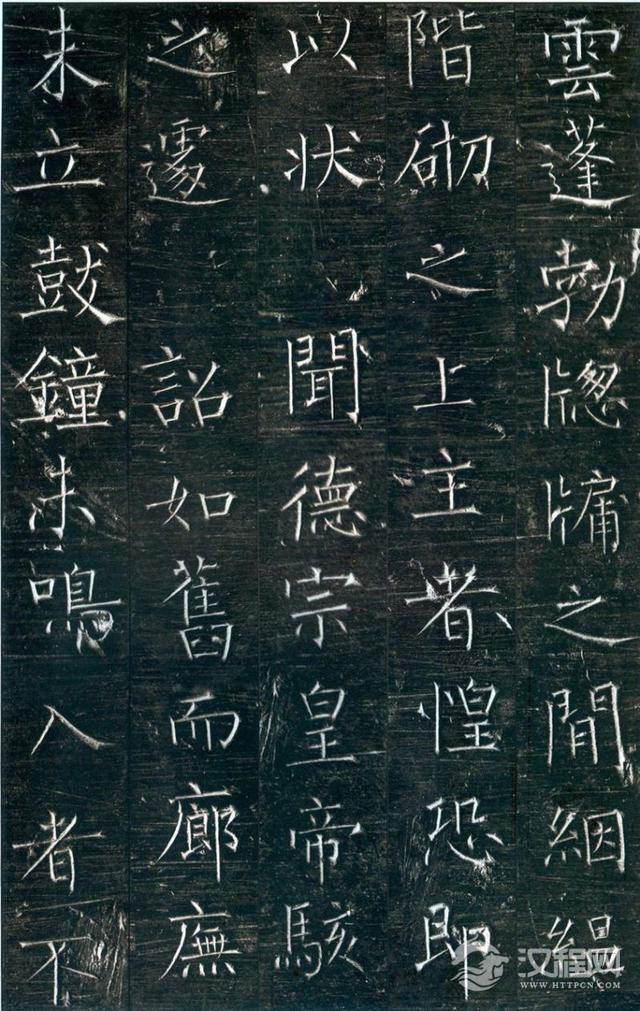 雲蓬勃牕牖之間絪縕
階砌之上主者惶恐即
以状聞德宗皇帝駭
之遽詔如舊而廊廡
未立鼓鐘未鳴入者不
汉程网
WWW.HTTPCN.COM